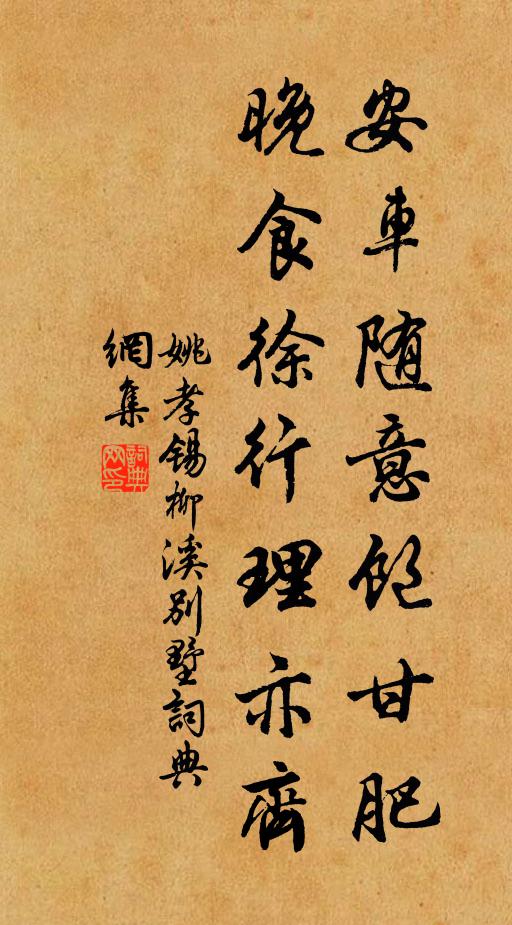 安車随意飽甘肥
晚食徐行理亦齊
姚孝锡柳溪别墅詞典
網集
詞典
网印